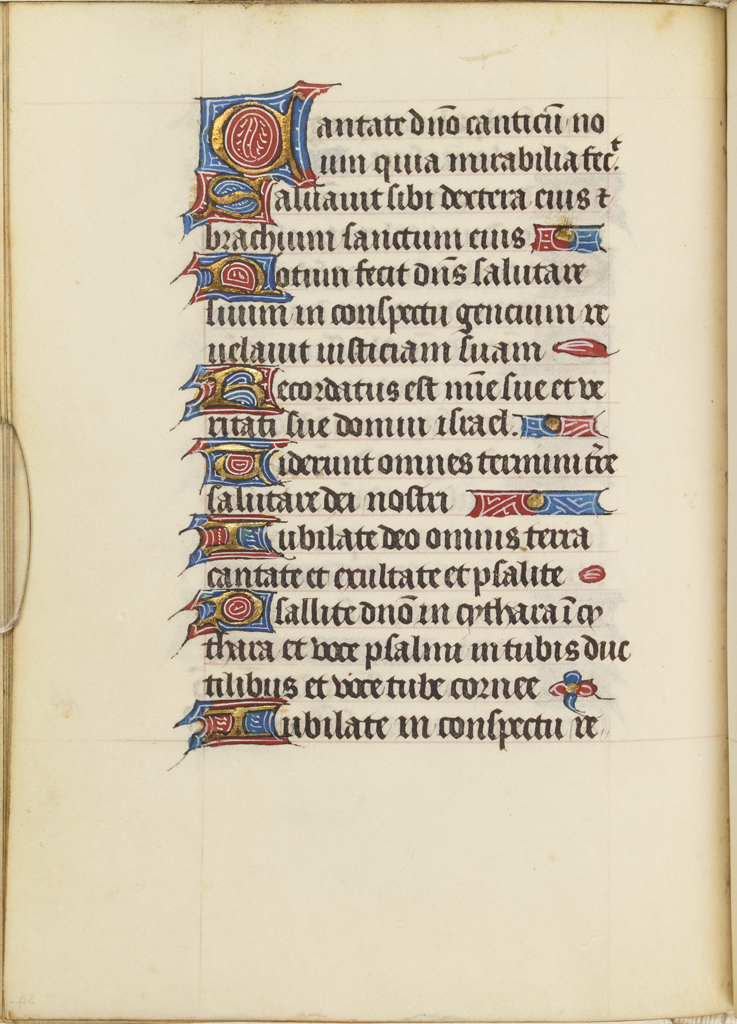 Cantate dño canticū no
uum quia mirabilia fec̃.
Saluauit sibi dextera eius ⁊
brachium sanctum eius
Notum fecit dñs salutare
suum in conspectu gencium re
uelauit iusticiam suam
Recordatus est mĩe sue et ve
ritati sue domui israel.
Uiderunt omnes termini tr̃e
salutare dei nostri
Iubilate deo omnis terra
cantate et exultate et psalite
Psallite dnõ in cythara ĩ cy
thara et voce psalmi in tubis duc
tilibus et voce tube cornee
Iubilate in conspectu re